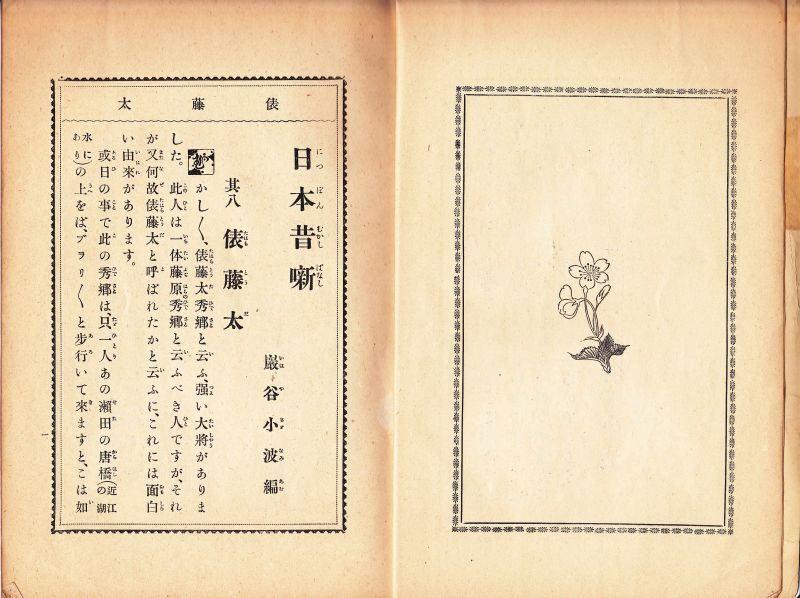 俵藤太
日本昔噺
其八 俵藤太
巌谷小波編
むかし〱、俵藤太秀郷と云ふ、强い大將がありま
した。此人は一体藤原秀郷と云ふべき人ですが、それ
が又何故俵藤太と呼ばれたかと云ふに、これには面白
い由來があります。
或日の事で此の秀郷は、只一人あの瀬田の唐橋(近江の湖
水にあり)の上をば、ブヲリ〱と步行いて來ますと、こは如
一